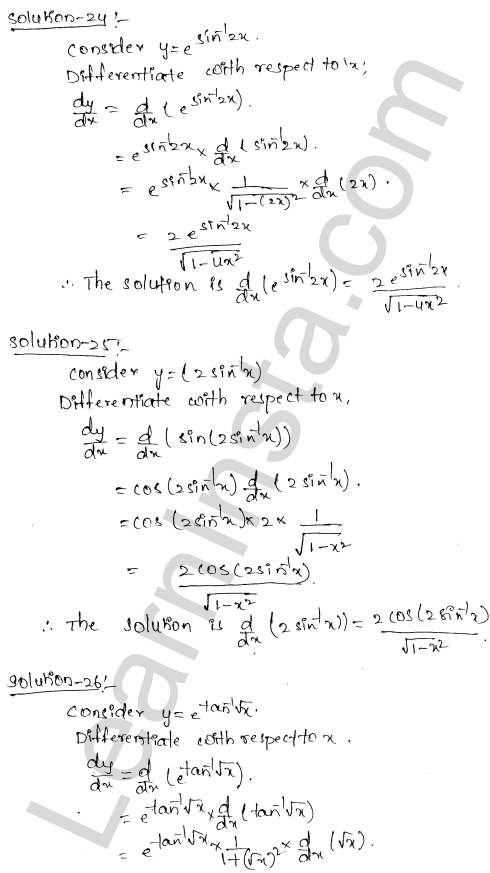 Solution-24:-
Consider y = e^sin⁻¹2x.
Differentiate with respect to 'x',
dy/dx = d/dx (e^sin⁻¹2x).
= e^sin⁻¹2x × d/dx (sin⁻¹2x).
= e^sin⁻¹2x × 1/√1-(2x)² × d/dx (2x).
= 2e^sin⁻¹2x/√1-4x²
∴ The solution is d/dx (e^sin⁻¹2x) = 2e^sin⁻¹2x/√1-4x².
Solution-25:-
Consider y = (2sin⁻¹x)
Differentiate with respect to x,
dy/dx = d/dx (sin(2sin⁻¹x))
= cos(2sin⁻¹x) d/dx (2sin⁻¹x).
= cos (2sin⁻¹x) × 2 × 1/√1-x²
= 2cos(2sin⁻¹x)/√1-x².
∴ The solution is d/dx (2sin⁻¹x)) = 2cos(2sin⁻¹x)/√1-x².
Solution-26:-
Consider y = e^tan⁻¹√x.
Differentiate with respect to x.
dy/dx = d/dx (e^tan⁻¹√x).
= e^tan⁻¹√x × d/dx (tan⁻¹√x)
= e^tan⁻¹√x × 1/1+(√x)² × d/dx (√x).
LearnInsta.com